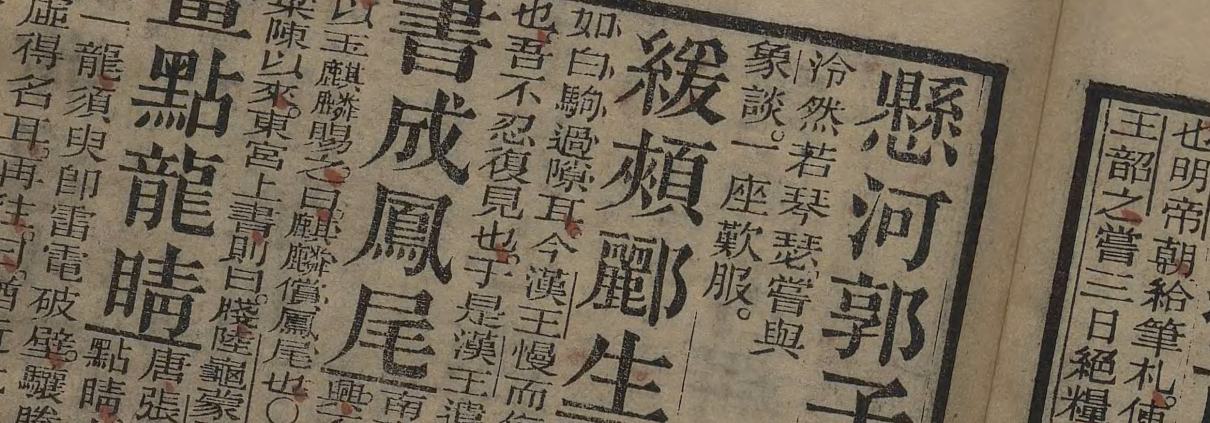 也明帝朝給筆札使
王韶之嘗三日絶糧
懸河郭子
泠然若琴瑟嘗與
象談。一座歎服。
緩頰酈生
如白駒過隙耳。今漢王慢而
也。吾不忍復見也。于是漢王遣
書成鳳尾南
以玉麒麟賜之。曰麒麟償鳳尾也〇
梁陳以來。東宮上書則曰牋陸龜蒙
畫點龍睛
唐張
點睛
一龍須臾卽雷電破壁。驤騰
虛得名耳。再往。曰。猶